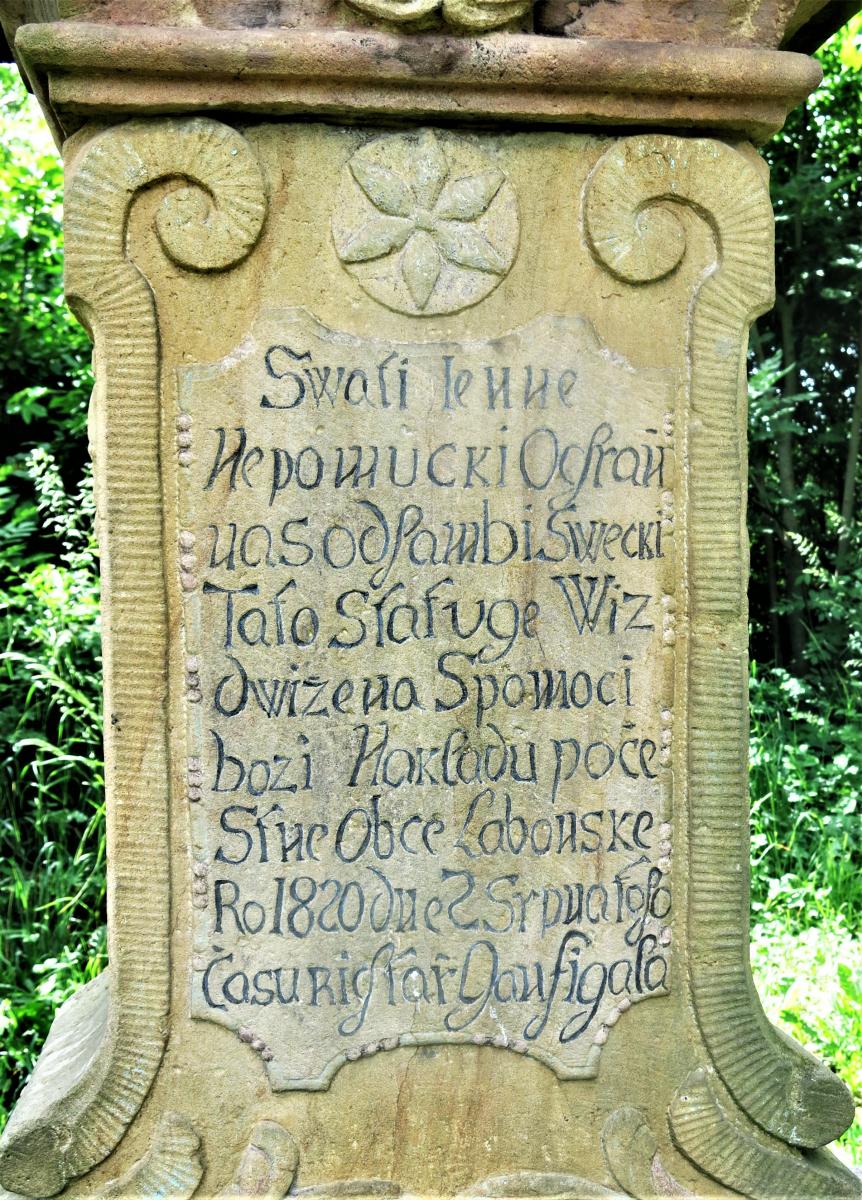 Swatí Ienne
Nepomucki Ochraň
nas od hambi Swecki
Tato Statuge Wiz
dwizena Spomoci
bozi Nakladu poče
Stne Obce Labonske
Ro 1820 dne 2 Srpna toho
Času Richtař Jan figala